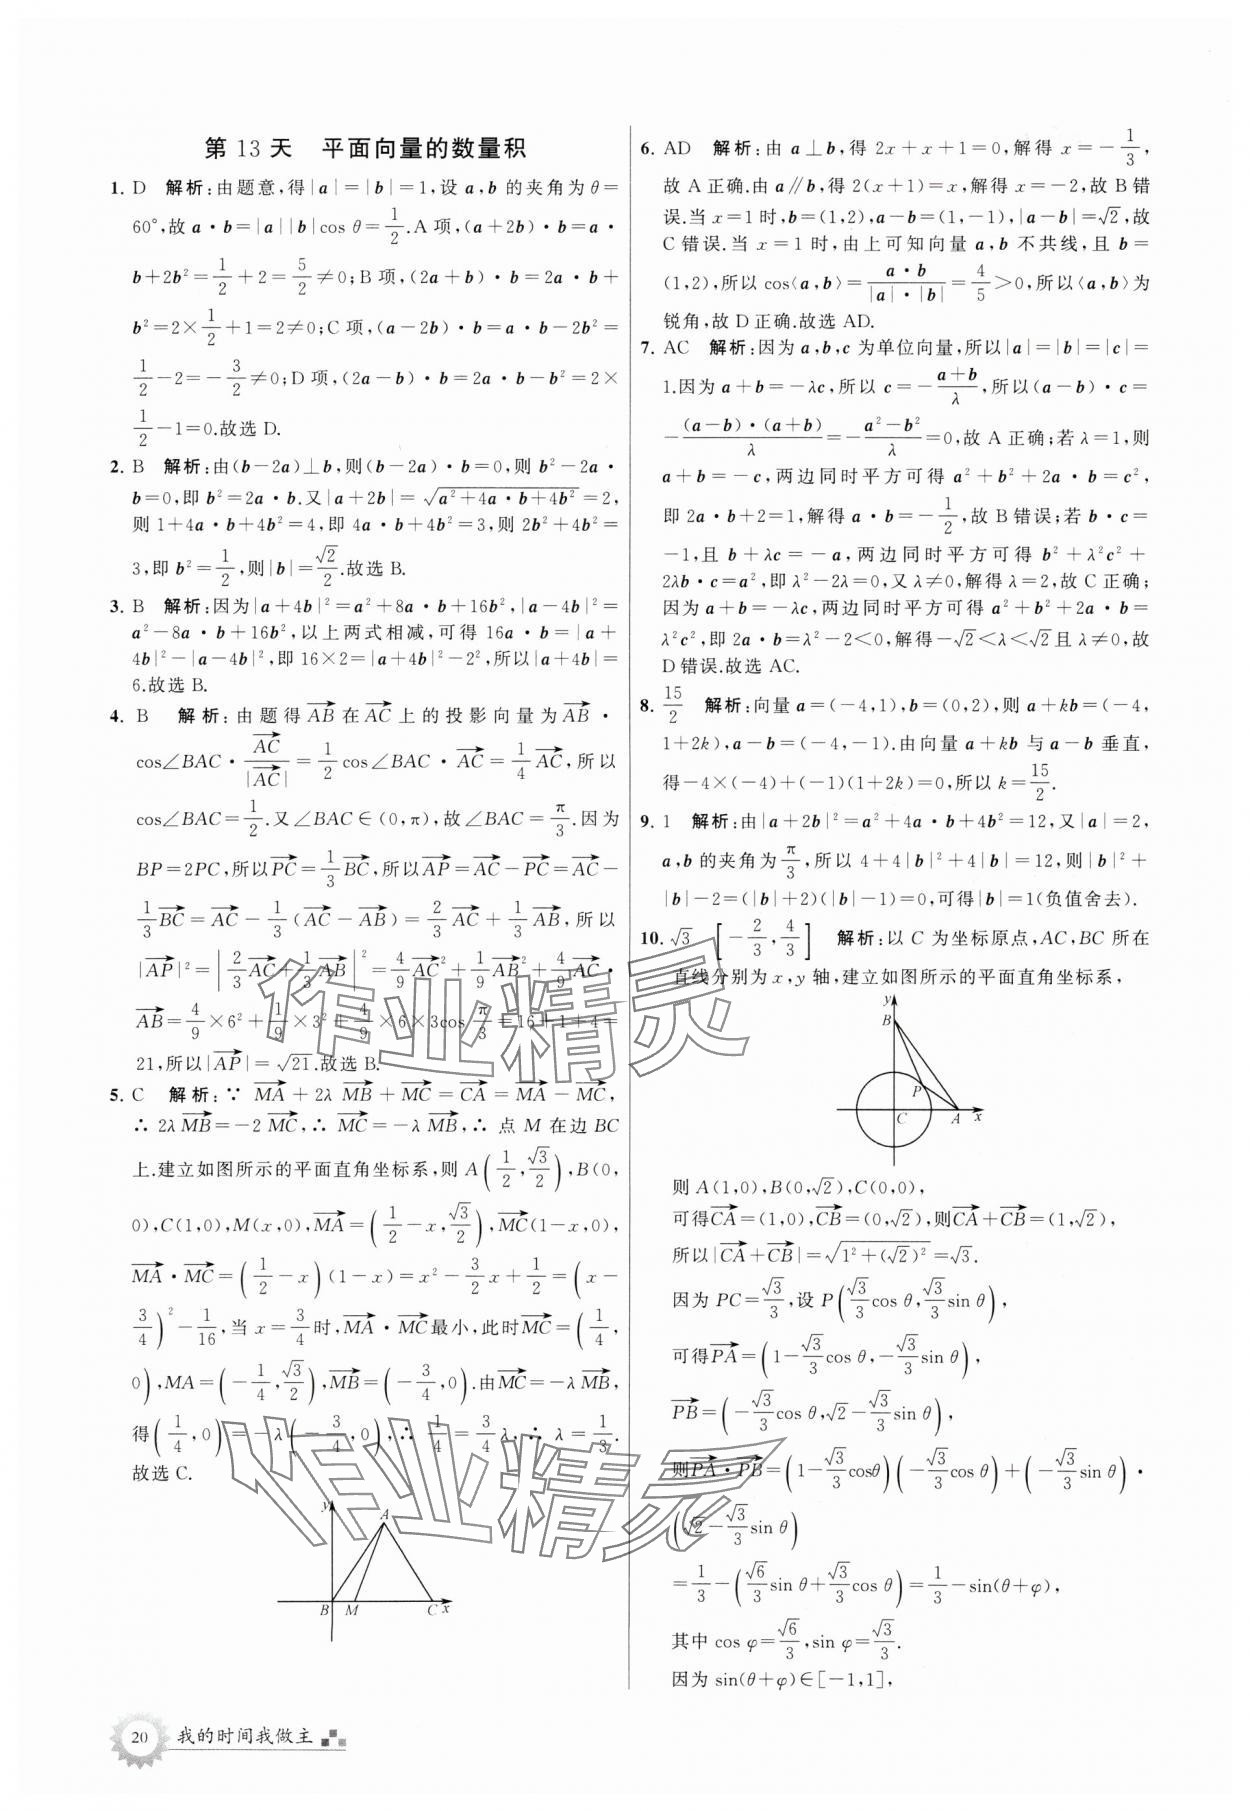 第 13 天 平面向量的数量积
1. D 解析:由题意,得|a|=|b|=1,设 a,b 的夹角为 θ=
60°,故 a·b=|a||b|cos θ=1/2.A 项,(a+2b)·b=a·
b+2b²=1/2+2=5/2≠0;B 项,(2a+b)·b=2a·b+
b²=2×1/2+1=2≠0;C 项,(a-2b)·b=a·b-2b²=
1/2-2=-3/2≠0;D 项,(2a-b)·b=2a·b-b²=2×
1/2-1=0.故选 D.
2. B 解析:由(b-2a)⊥b,则(b-2a)·b=0,则 b²-2a·
b=0,即 b²=2a·b.又|a+2b|=√(a²+4a·b+4b²)=2,
则 1+4a·b+4b²=4,即 4a·b+4b²=3,则 2b²+4b²=
3,即 b²=1/2,则|b|=√2/2.故选 B.
3. B 解析:因为|a+4b|²=a²+8a·b+16b²,|a-4b|²=
a²-8a·b+16b²,以上两式相减,可得 16a·b=|a+
4b|²-|a-4b|²,即 16×2=|a+4b|²-2²,所以|a+4b|=
6.故选 B.
4. B 解析:由题得AB→在AC→上的投影向量为AB→·
cos∠BAC·AC→/|AC→|=1/2cos∠BAC·AC→=1/4AC→,所以
cos∠BAC=1/2.又∠BAC∈(0,π),故∠BAC=π/3.因为
BP=2PC,所以PC→=1/3BC→,所以AP→=AC→-PC→=AC→-
1/3BC→=AC→-1/3(AC→-AB→)=2/3AC→+1/3AB→,所以
|AP→|²=|2/3AC→+1/3AB→|²=4/9AC→²+1/9AB→²+4/9AC→·
AB→=4/9×6²+1/9×3²+4/9×6×3cosπ/3=16+1+4=
21,所以|AP→|=√21.故选 B.
5. C 解析:∵MA→+2λMB→+MC→=CA→=MA→-MC→,
∴2λMB→=-2MC→,∴MC→=-λMB→,∴点 M 在边 BC
上.建立如图所示的平面直角坐标系,则 A(1/2,√3/2),B(0,
0),C(1,0),M(x,0),MA→=(1/2-x,√3/2),MC→(1-x,0),
MA→·MC→=(1/2-x)(1-x)=x²-3/2x+1/2=(x-
3/4)²-1/16,当 x=3/4时,MA→·MC→最小,此时MC→=(1/4,
0),MA=(-1/4,√3/2),MB→=(-3/4,0).由MC→=-λMB→,
得(1/4,0)=-λ(-3/4,0),∴1/4=3/4λ,∴λ=1/3.
故选 C.
y
A
B M C x
6. AD 解析:由 a⊥b,得 2x+x+1=0,解得 x=-1/3,
故 A 正确.由 a∥b,得 2(x+1)=x,解得 x=-2,故 B 错
误.当 x=1 时,b=(1,2),a-b=(1,-1),|a-b|=√2,故
C 错误.当 x=1 时,由上可知向量 a,b 不共线,且 b=
(1,2),所以 cos⟨a,b⟩=a·b/(|a|·|b|)=4/5>0,所以⟨a,b⟩为
锐角,故 D 正确.故选 AD.
7. AC 解析:因为 a,b,c 为单位向量,所以|a|=|b|=|c|=
1.因为 a+b=-λc,所以 c=-(a+b)/λ,所以(a-b)·c=
-(a-b)·(a+b)/λ=-(a²-b²)/λ=0,故 A 正确;若 λ=1,则
a+b=-c,两边同时平方可得 a²+b²+2a·b=c²,
即 2a·b+2=1,解得 a·b=-1/2,故 B 错误;若 b·c=
-1,且 b+λc=-a,两边同时平方可得 b²+λ²c²+
2λb·c=a²,即 λ²-2λ=0,又 λ≠0,解得 λ=2,故 C 正确;
因为 a+b=-λc,两边同时平方可得 a²+b²+2a·b=
λ²c²,即 2a·b=λ²-2<0,解得-√2<λ<√2且 λ≠0,故
D 错误.故选 AC.
8. 15/2 解析:向量 a=(-4,1),b=(0,2),则 a+kb=(-4,
1+2k),a-b=(-4,-1).由向量 a+kb 与 a-b 垂直,
得-4×(-4)+(-1)(1+2k)=0,所以 k=15/2.
9. 1 解析:由|a+2b|²=a²+4a·b+4b²=12,又|a|=2,
a,b 的夹角为π/3,所以 4+4|b|²+4|b|=12,则|b|²+
|b|-2=(|b|+2)(|b|-1)=0,可得|b|=1(负值舍去).
10. √3 [-2/3,4/3] 解析:以 C 为坐标原点,AC,BC 所在
直线分别为 x,y 轴,建立如图所示的平面直角坐标系,
y
B
P
C A x
则 A(1,0),B(0,√2),C(0,0),
可得CA→=(1,0),CB→=(0,√2),则CA→+CB→=(1,√2),
所以|CA→+CB→|=√(1²+(√2)²)=√3.
因为 PC=√3/3,设 P(√3/3cos θ,√3/3sin θ),
可得PA→=(1-√3/3cos θ,-√3/3sin θ),
PB→=(-√3/3cos θ,√2-√3/3sin θ),
则PA→·PB→=(1-√3/3cosθ)(-√3/3cos θ)+(-√3/3sin θ)·
(√2-√3/3sin θ)
=1/3-(√6/3sin θ+√3/3cos θ)=1/3-sin(θ+φ),
其中 cos φ=√6/3,sin φ=√3/3.
因为 sin(θ+φ)∈[-1,1],
作业精灵
作业精灵
20 我的时间我做主